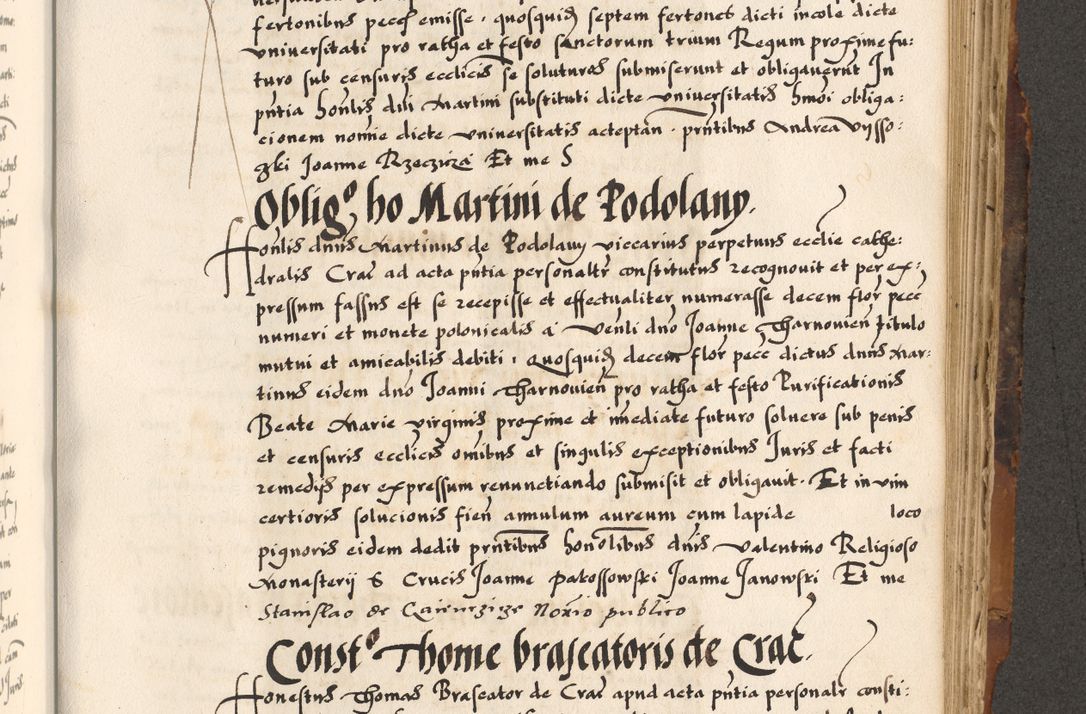 fertonibus pecc emisse . quosquid septem fertones dicti incole dicte
universitati pro ratha et festo sanctorum trium Regum proxime fu:
turo sub censuris ecclicis se soluturos submiserunt et obligaverunt In
pntia honlis dni Martini substituti dicte universitatis hmoi obliga:
cionem nomie dicte universitatis acceptan . pntibus Andrea Vysso:
gki Joanne Rzecziza Et me S
Oblig° ho Martini de Podolany.
Honlis dnus Martinus de Podolany viccarius perpetuus ecclie cathe:
dralis Crac ad acta pntia personaltr constitutus recognovit et per ex:
pressum fassus est se recepisse et effectualiter numerasse decem flor pecc
numeri et monete polonicalis a Venli dno Joanne Tharnovien titulo
mutui et amicabilis debiti . Quosquid decem flor pecc dictus dnus Mar:
tinus eidem dno Joanni Tharnovien pro ratha et festo Purificationis
Beate Marie virginis proxime et imediate futuro solvere sub penis
et censuris ecclicis omibus et singulis exceptionibus Juris et facti
remedijs per expressum renunctiando submisit et obligavit . Et in vim
certioris solucionis fien annulum aureum cum lapide loco
pignoris eidem dedit prntibus honolibus dnis Valentino Religioso
Monasterij S Crucis Joanne Pakossowski Joanne Janowski Et me
Stanislao de Notrio publico
Const° Thome braseatoris de Crac.
Honestus Thomas Braseator de Crac apud acta pntia personalr consti: